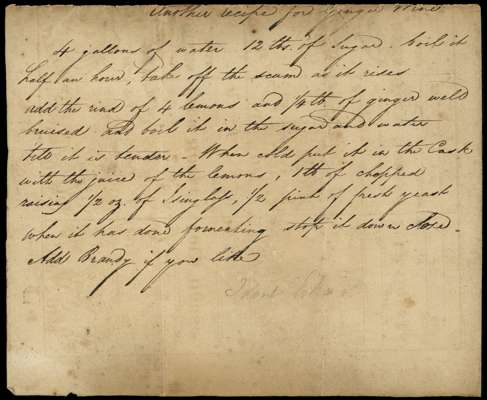 Another recipe for Ginger Wine
4 gallons of water 12 lbs. of Sugar. boil it
half an hour, take off the scum as it rises
add the rind of 4 lemons and 1/4 lb. of ginger well
bruised and boil it in the sugar and water
till it is tender When cold put it in the Cask
with the juice of the lemons, 1 lb of chopped
raisins 1/2 oz. of Isinglass, 1/2 pint of fresh yeast
when it has done fomenting stop it down close.
Add Brandy if you like